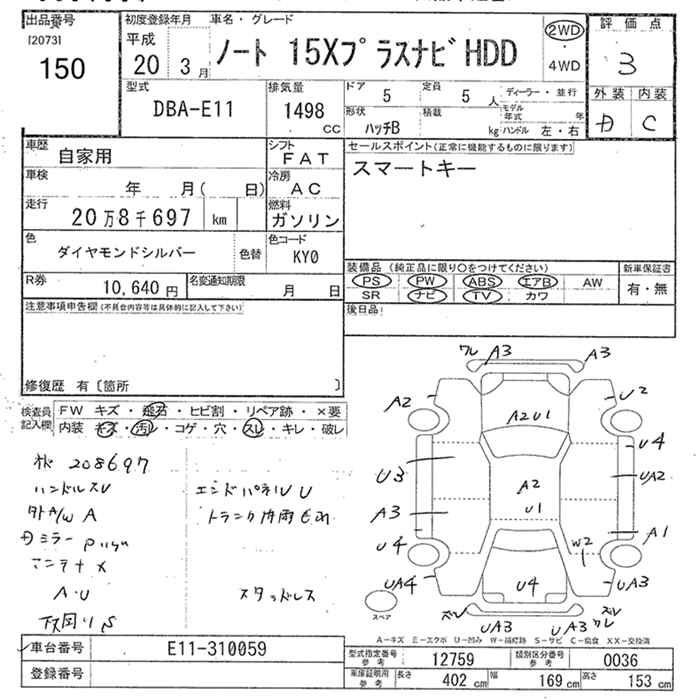 出品番号 初度登録年月 車名・グレード 評価点
[2073]
150
平成 20 3月
ノート 15XプラスナビHDD
2WD
・
4WD
3
型式 DBA-E11
排気量 1498 CC
ドア 5 定員 5人 ディーラー・並行
形状 ハッチB 積載 kg
モデル年式 年
ハンドル 左・右
外装 内装
C
車歴 自家用
シフト FAT
セールスポイント(正常に機能するものに限ります)
スマートキー
車検 年 月( 日)
冷房 AC
走行 20万8千697 km
燃料 ガソリン
色 ダイヤモンドシルバー 色替
色コード KY0
R券 10,640円
名変通知期限 月 日
装備品(純正品に限り○をつけてください) 新車保証書
PS PW ABS エアB AW 有・無
SR ナビ TV カワ
注意事項申告欄(不具合内容等は具体的に記入して下さい)
後日品
修復歴 有〔箇所 〕
検査員記入欄
FW キズ・飛石・ヒビ割・リペア跡・×要
内装 キズ・汚レ・コゲ・穴・スレ・キレ・破レ
208697
ハンドルスレ
エンドパネルU
A
ミラー
A・U
スタッドレス
ワレ A3 A3
A2 U2
A2U1
U3 U4
A2 UA2
U1
A3 A1
U4 W2
UA4 U4 UA3
スペア
UA3 UA3 ワレ
A-キズ E-エクボ U-凹み W-補修跡 S-サビ C-腐食 XX-交換済
車台番号 E11-310059
登録番号
型式指定番号 参考 12759
類別区分番号 参考 0036
車庫証明用 参考 長さ 402 cm 幅 169 cm 高さ 153 cm